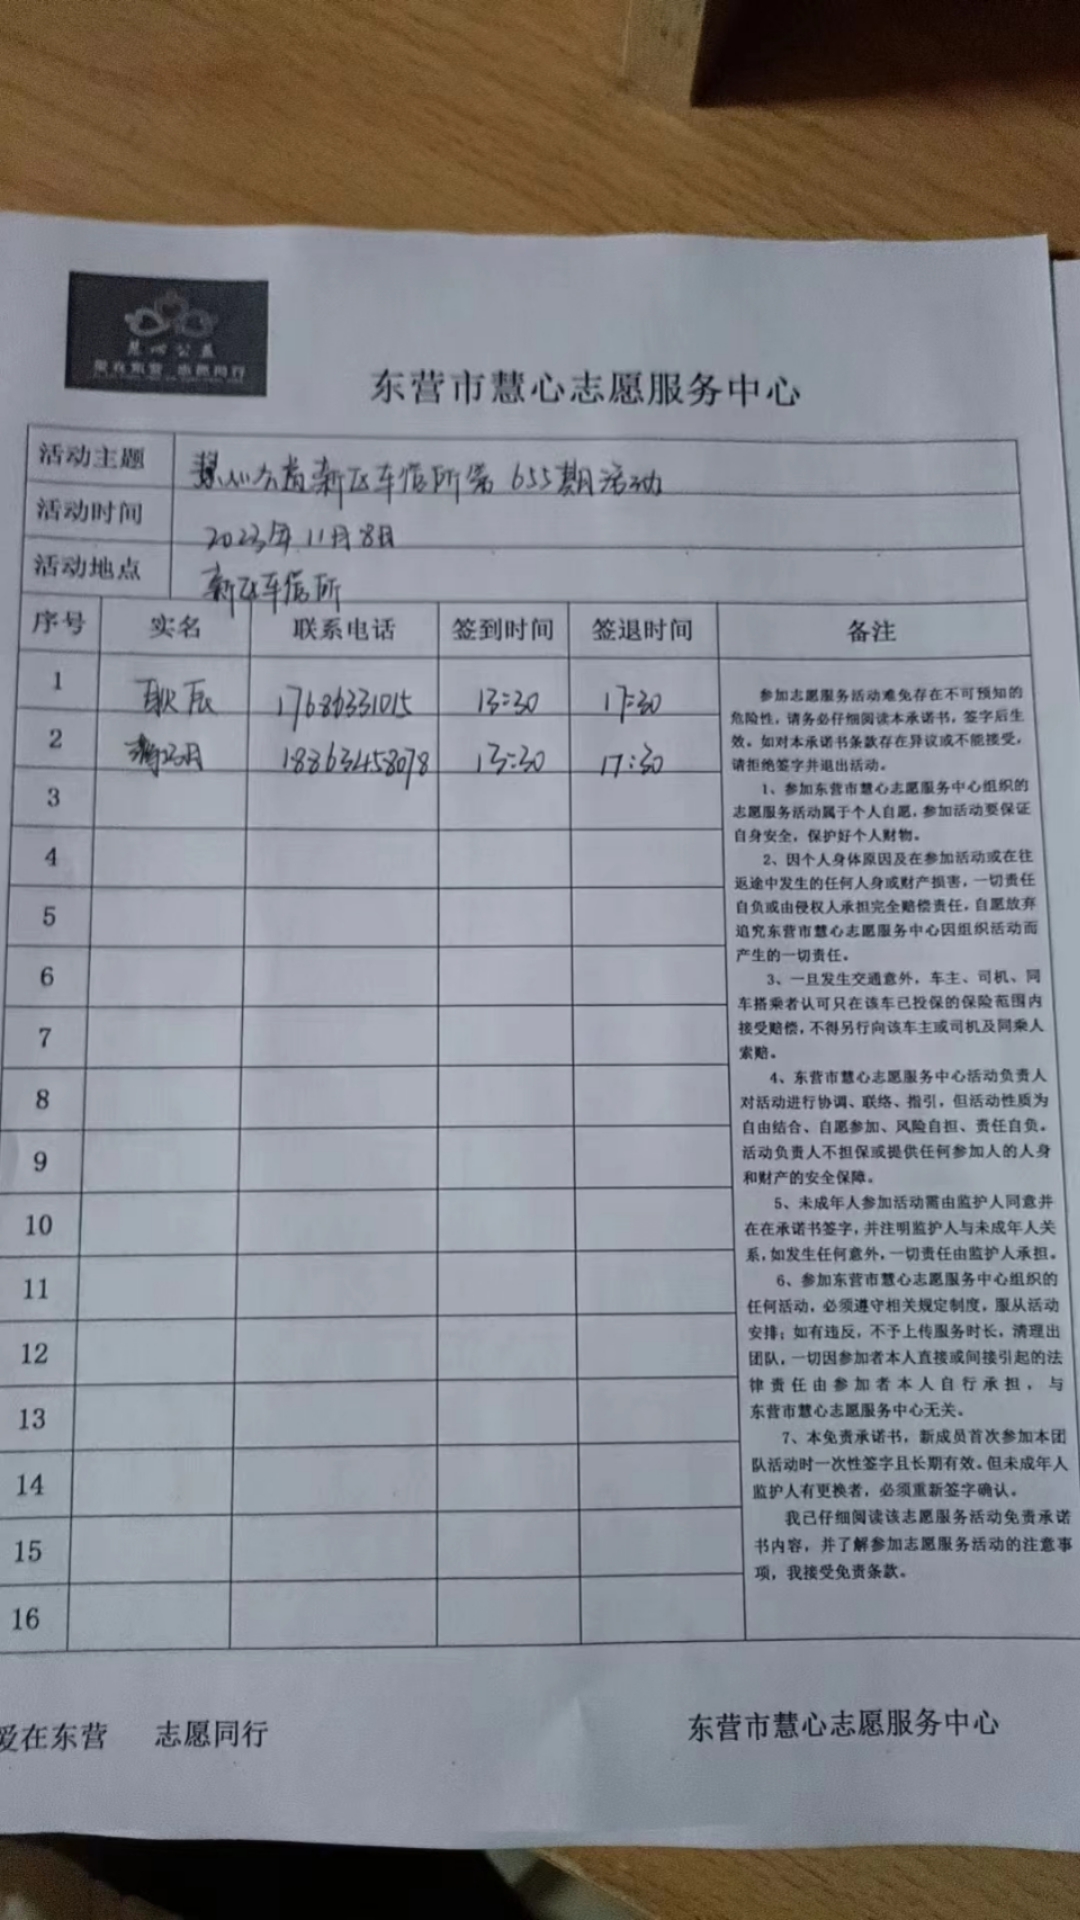 慧心公益
爱在东营 志愿同行
东营市慧心志愿服务中心
活动主题 慧心公益新区车管所第655期活动
活动时间 2023年11月8日
活动地点 新区车管所
序号 实名 联系电话 签到时间 签退时间 备注
1 耿辰 17686331015 13:30 17:30
2 明月 18863458078 13:30 17:30
3
4
5
6
7
8
9
10
11
12
13
14
15
16
参加志愿服务活动难免存在不可预知的
危险性，请务必仔细阅读本承诺书，签字后生
效。如对本承诺书条款存在异议或不能接受，
请拒绝签字并退出活动。
1、参加东营市慧心志愿服务中心组织的
志愿服务活动属于个人自愿，参加活动要保证
自身安全，保护好个人财物。
2、因个人身体原因及在参加活动或在往
返途中发生的任何人身或财产损害，一切责任
自负或由侵权人承担完全赔偿责任，自愿放弃
追究东营市慧心志愿服务中心因组织活动而
产生的一切责任。
3、一旦发生交通意外，车主、司机、同
车搭乘者认可只在该车已投保的保险范围内
接受赔偿，不得另行向该车主或司机及同乘人
索赔。
4、东营市慧心志愿服务中心活动负责人
对活动进行协调、联络、指引，但活动性质为
自由结合、自愿参加、风险自担、责任自负。
活动负责人不担保或提供任何参加人的人身
和财产的安全保障。
5、未成年人参加活动需由监护人同意并
在在承诺书签字，并注明监护人与未成年人关
系，如发生任何意外，一切责任由监护人承担。
6、参加东营市慧心志愿服务中心组织的
任何活动，必须遵守相关规定制度，服从活动
安排；如有违反，不予上传服务时长，清理出
团队，一切因参加者本人直接或间接引起的法
律责任由参加者本人自行承担，与
东营市慧心志愿服务中心无关。
7、本免责承诺书，新成员首次参加本团
队活动时一次性签字且长期有效。但未成年人
监护人有更换者，必须重新签字确认。
我已仔细阅读该志愿服务活动免责承诺
书内容，并了解参加志愿服务活动的注意事
项，我接受免责条款。
爱在东营 志愿同行
东营市慧心志愿服务中心